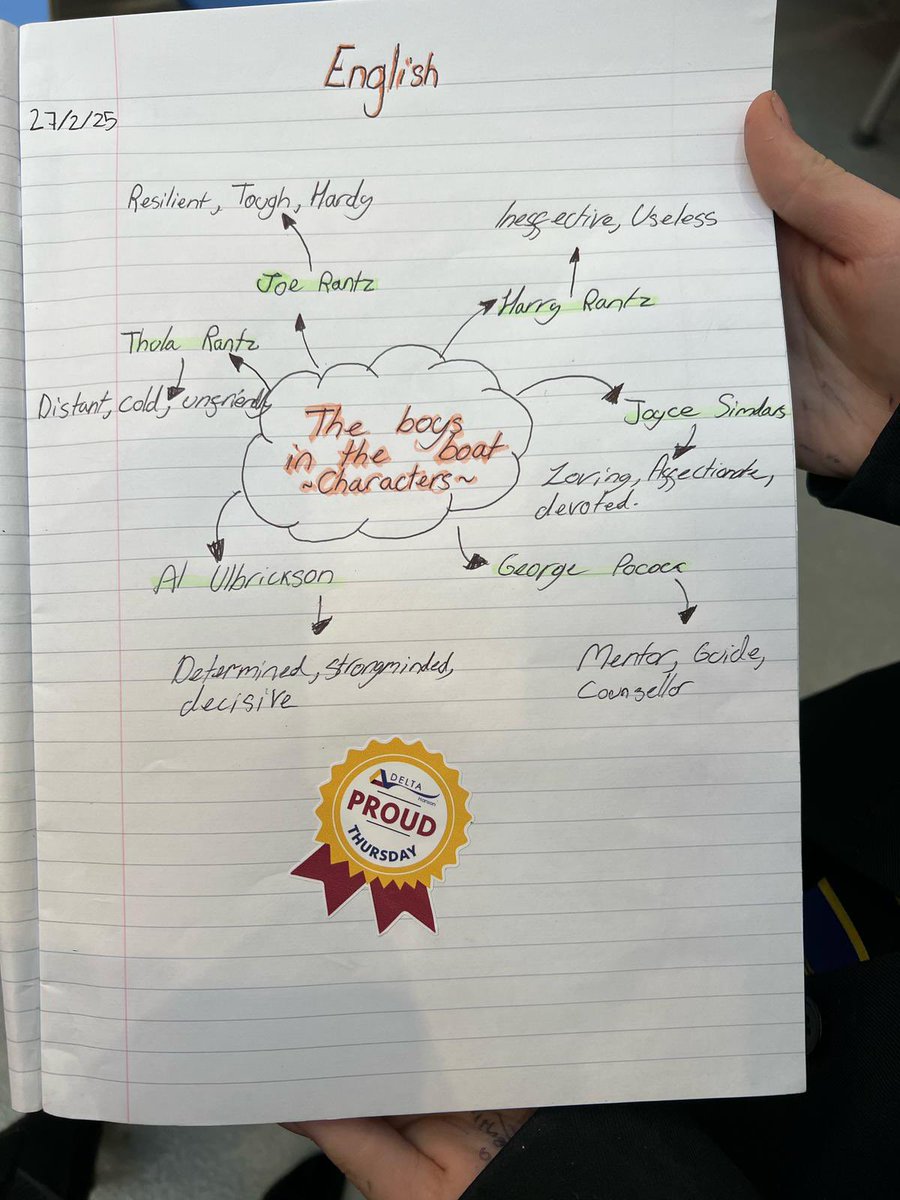 English
27/2/25
Resilient, Tough, Hardy
Joe Rantz
Ineffective, Useless
Harry Rantz
Thula Rantz
Distant, cold, unfriendly
Joyce Simdars
Loving, Affectionate,
devoted.
The boys
in the boat
~Characters~
Al Ulbrickson
Determined, strongminded,
decisive
George Pocock
Mentor, Guide,
Counsellor
DELTA
PROUD
THURSDAY